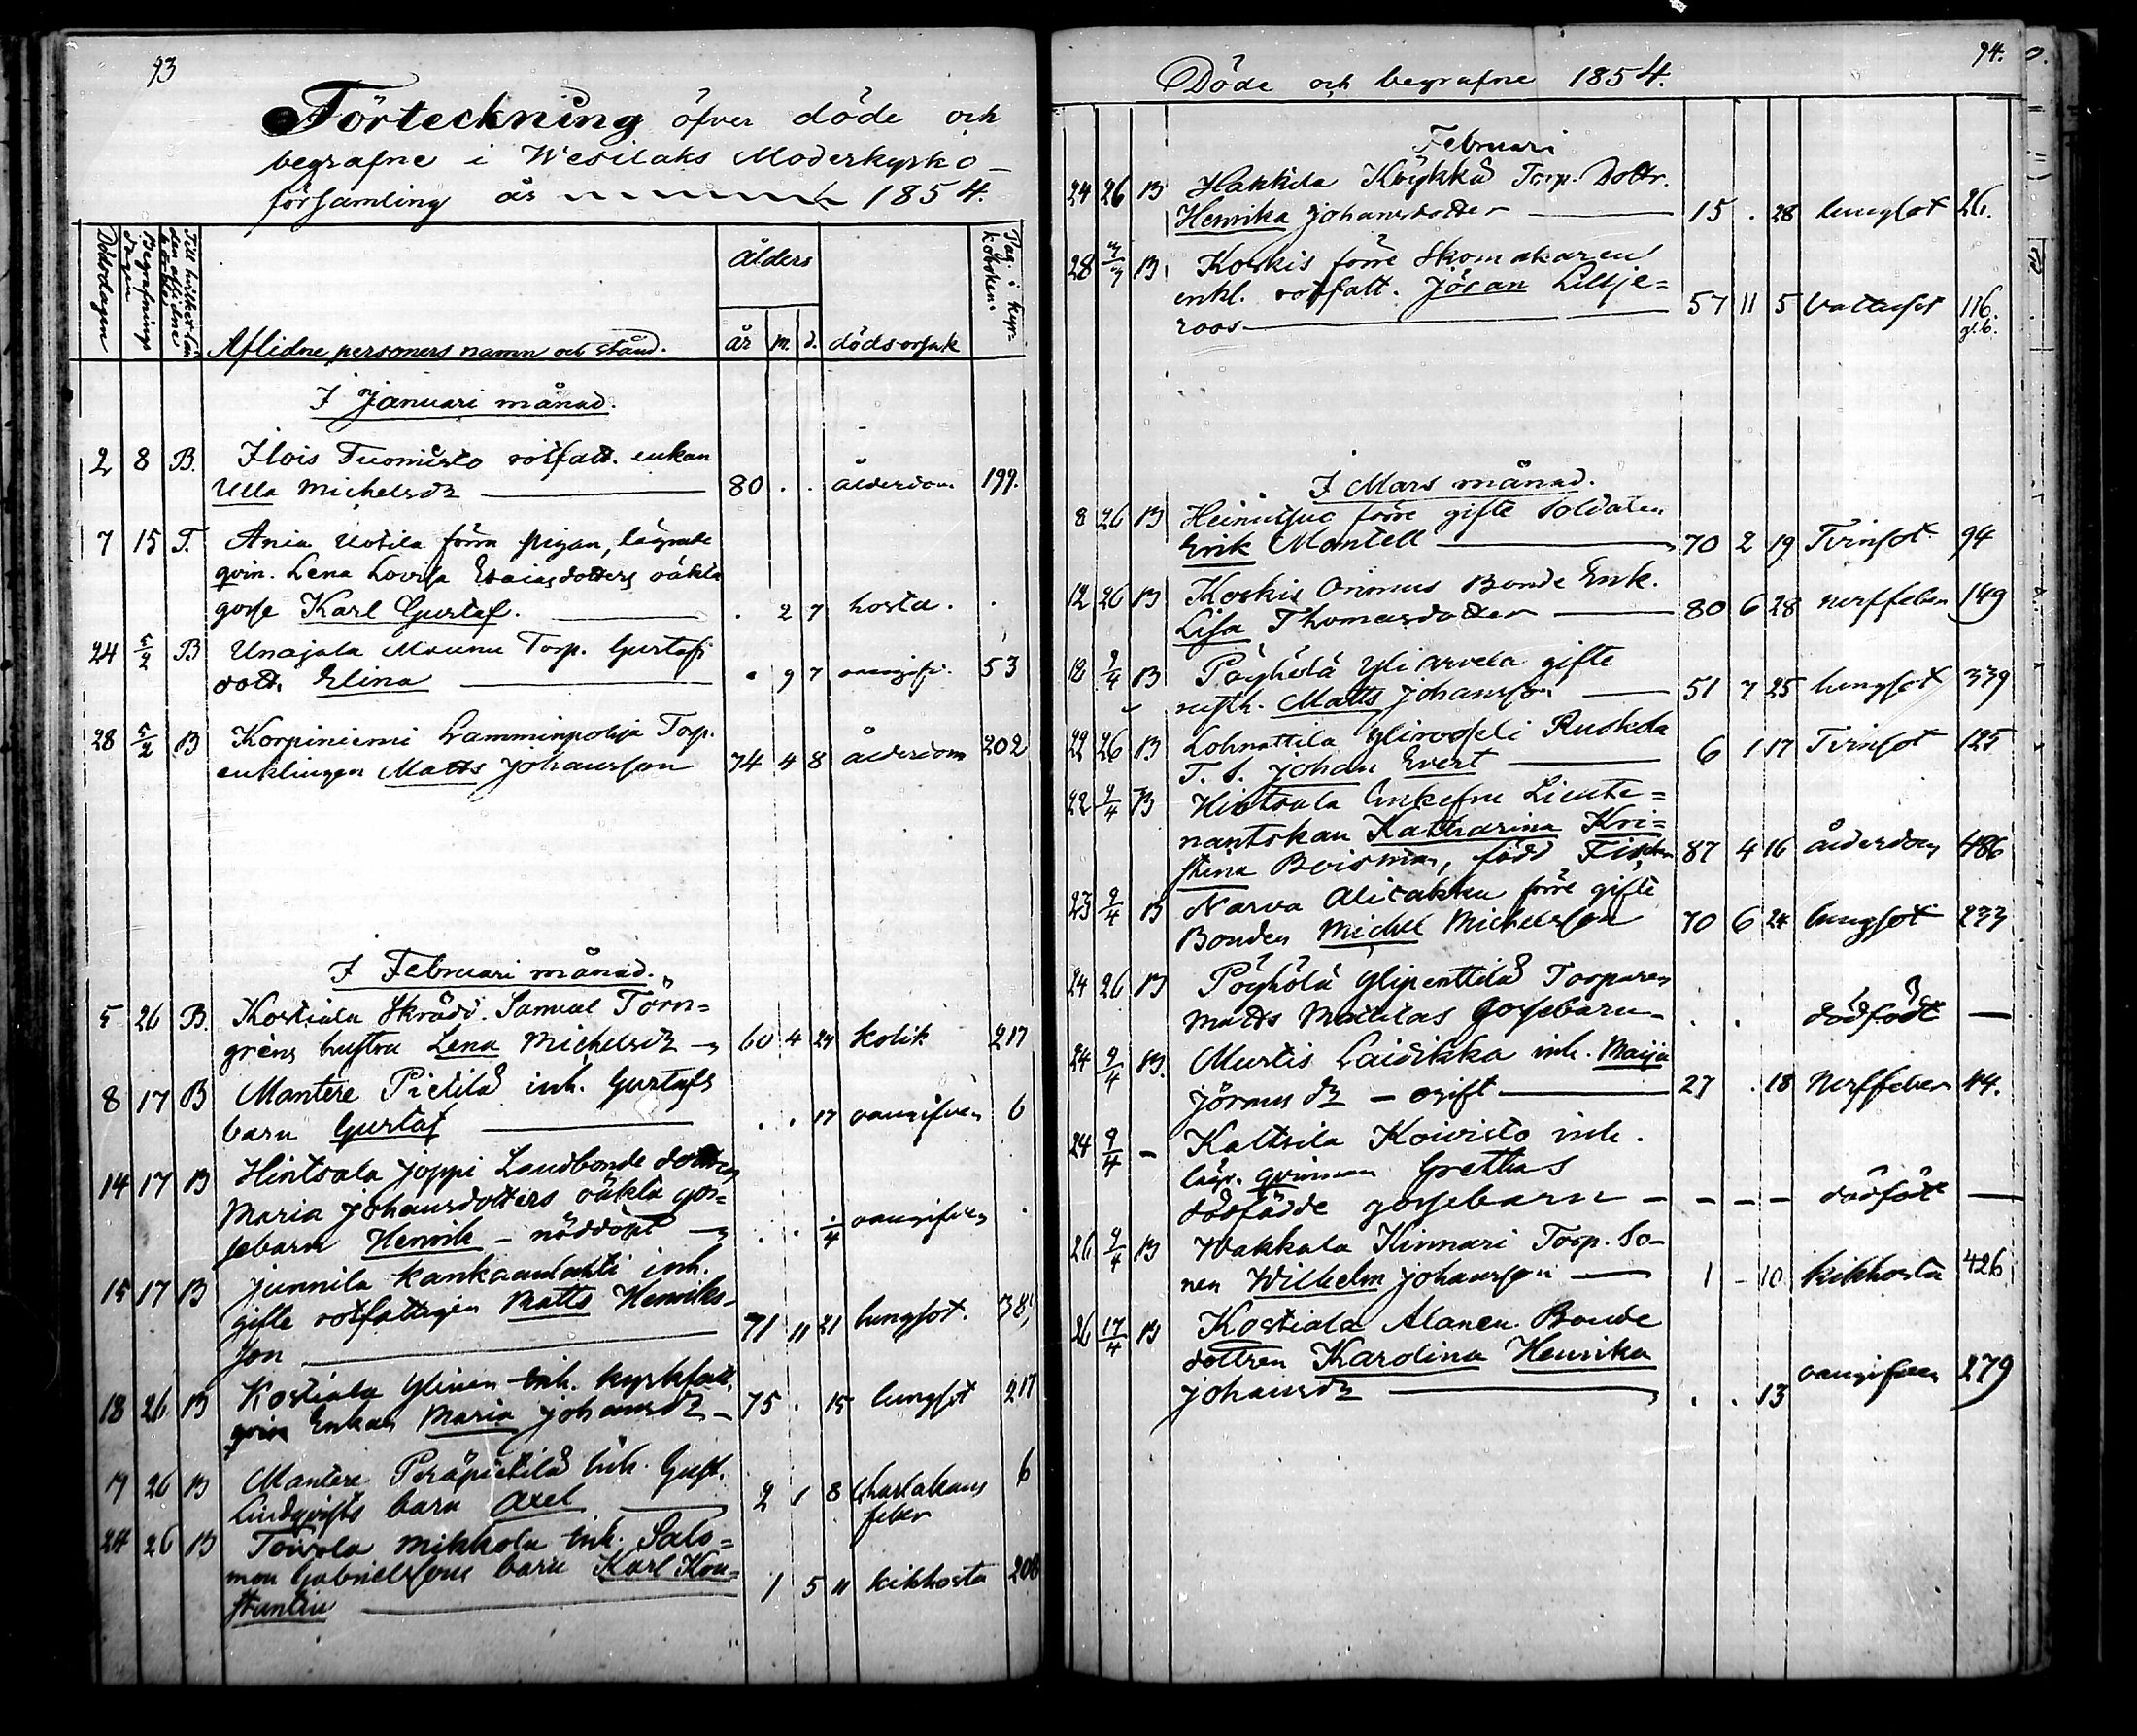 93
Förteckning öfver döde och
begrafne i Wesilaks Moderkyrko-
församling år 1854.
Dödsdagen
Begrafnings dagen
Till hvilket län den aflidne
Aflidne personers namn och stånd.
Ålders
år m. d.
dödsorsak
Pag. i kyrkoboken
I Januari månad.
2 8 B. Ilois Tuomisto rotfatt. enkan
Ulla Michelsdr 80 . . ålderdom 199.
7 15 T. Ania Uotila förra pigan, lägrade
qvin. Lena Lovisa Esaiasdotters oäkta
gosse Karl Gustaf. . 2 7 hosta . .
24 5/2 B Unajala Maunu Torp. Gustafs
dott. Elina . 9 7 53
28 5/2 B Korpiniemi Lamminpohja Torp.
enklingen Matts Johansson 74 4 8 ålderdom 202
I Februari månad.
5 26 B. Kostiala Skrädd. Samuel Törn=
gréns hustru Lena Michelsdr 60 4 24 kolik 217
8 17 B Mantere Pietilä inh. Gustafs
barn Gustaf . . 17 oangifven 6
14 17 B Hintsala Joppi Landbonde dottren
Maria Johansdotters oäkta gos=
sebarn Henrik – nöddöpt . . 1/4 oangifven .
15 17 B Junnila inh.
gifte rotfattigen Matts Henriks-
son 71 11 21 lungsot. 38
18 26 B Kostiala Ylinen inh. kyrkfatt.
qvin Enkan Maria Johansdr – 75 . 15 lungsot 217
19 26 B Mantere Peräpietilä inh. Gust.
Lindqvists barn Axel 2 1 8 Skarlakans
feber 6
24 26 B Toivola Mikkola inh. Salo=
mon Gabrielssons barn Karl Kon=
stantin 1 5 11 kikhosta 208
94.
Döde och begrafne 1854.
Februari
24 26 B Hakkila Köykkä Torp. Dottr.
Henrika Johansdotter 15 . 28 lungsot 26.
28 B. Koskis förre Skomakaren
enkl. rotfatt. Jöran Lillje=
roos 57 11 5 Vattusot 116.
I Mars månad.
8 26 B Heinusuo förre gifte Soldaten
Erik Mantell 70 2 19 Tvinsot 94
12 26 B Koskis Onimus Bonde Enk.
Lisa Thomasdotter 80 6 28 nerffeber 149
12 9/4 B Pöyhölä Yliarvela gifte
rusth. Matts Johansson 51 7 25 lungsot 339
22 26 B Lohnattila Ruskila
T. S. Johan Evert 6 1 17 Tvinsot 125
22 9/4 B Hintsala Enkefru Lieute=
nantskan Katharina Kri=
stina Boisman, född 87 4 16 ålderdom 486
23 9/4 B Narva Alitakku förre gifte
Bonden Michel Michelsson 70 6 24 lungsot 233
24 26 B Pöyhölä Ylipenttilä Torparen
Matts Mattilas Gossebarn . . dödfödt —
24 9/4 B. Murtis Laidikka inh. Maija
Jöransdr – ogift 27 . 18 Nerffeber 14.
24 9/4 – Kaltsila Koivisto inh.
lägr. qvinnan Grethas
dödfödde gossebarn – – – – dödfödt —
26 9/4 B Wakkala Kinnari Torp. So-
nen Wilhelm Johansson 1 – 10 kikhosta 426
26 17/4 B Kostiala Alanen Bonde
dottren Karolina Henrika
Johansdr . . 13 oangifven 279